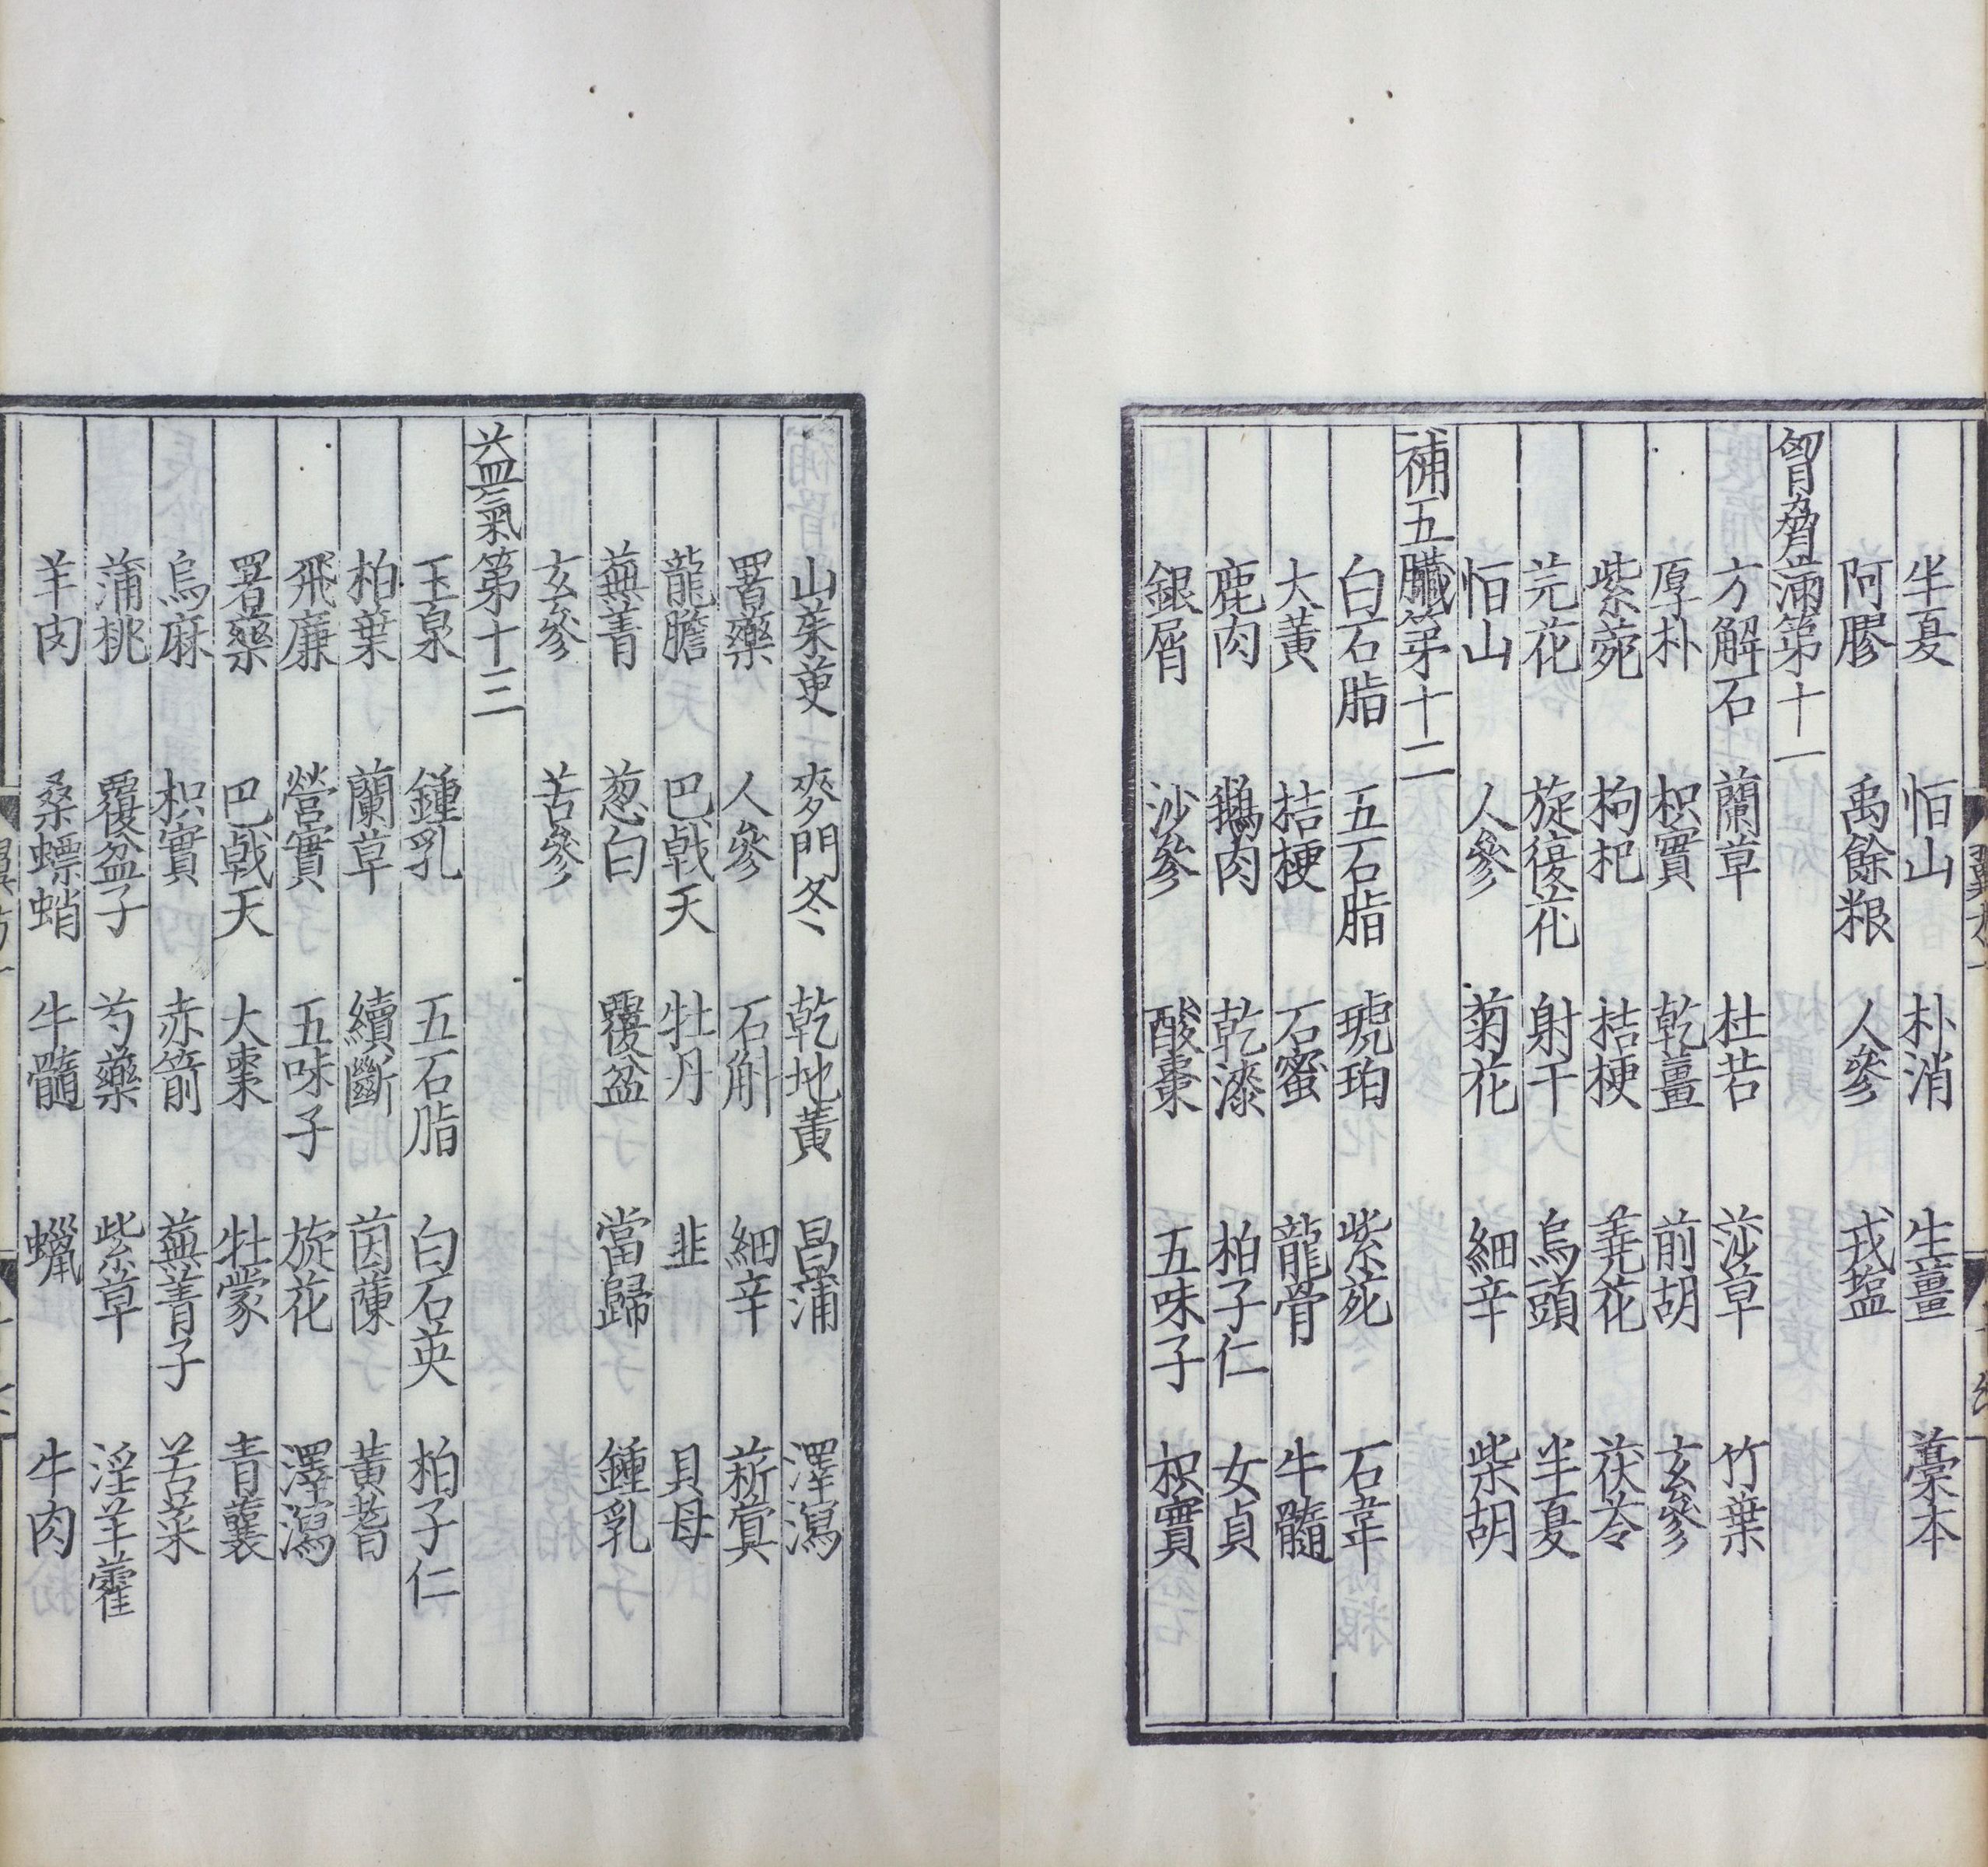 半夏　恒山　朴消　生薑　藁本
阿膠　禹餘粮　人參　戎塩
胷脅滿第十一
方解石　蘭草　杜若　莎草　竹葉
厚朴　枳實　乾薑　前胡　玄參
紫菀　枸杞　桔梗　蕘花　茯苓
芫花　旋復花　射干　烏頭　半夏
恒山　人參　菊花　細辛　柴胡
補五臟第十二
白石脂　五石脂　琥珀　紫菀　石韋
大黃　桔梗　石蜜　龍骨　牛髓
鹿肉　鵝肉　乾漆　柏子仁　女貞
銀屑　沙參　酸棗　五味子　枳實
山茱萸　麥門冬　乾地黃　昌蒲　澤瀉
署藥　人參　石斛　細辛　菥蓂
龍膽　巴戟天　牡丹　韭　貝母
蕪菁　葱白　覆盆　當歸　鍾乳
玄參　苦參
益氣第十三
玉泉　鍾乳　五石脂　白石英　柏子仁
柏葉　蘭草　續斷　茵蔯　黃耆
飛廉　營實　五味子　旋花　澤瀉
署藥　巴戟天　大棗　牡蒙　青蘘
烏麻　枳實　赤箭　蕪菁子　苦菜
蒲桃　覆盆子　芍藥　紫草　淫羊藿
羊肉　桑螵蛸　牛髓　蠟　牛肉